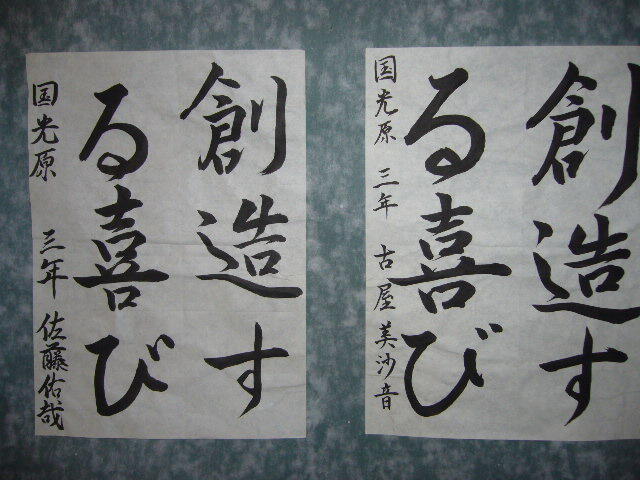 創造す
る喜び
国光原 三年 古屋美沙音
創造す
る喜び
国光原 三年 佐藤佑哉